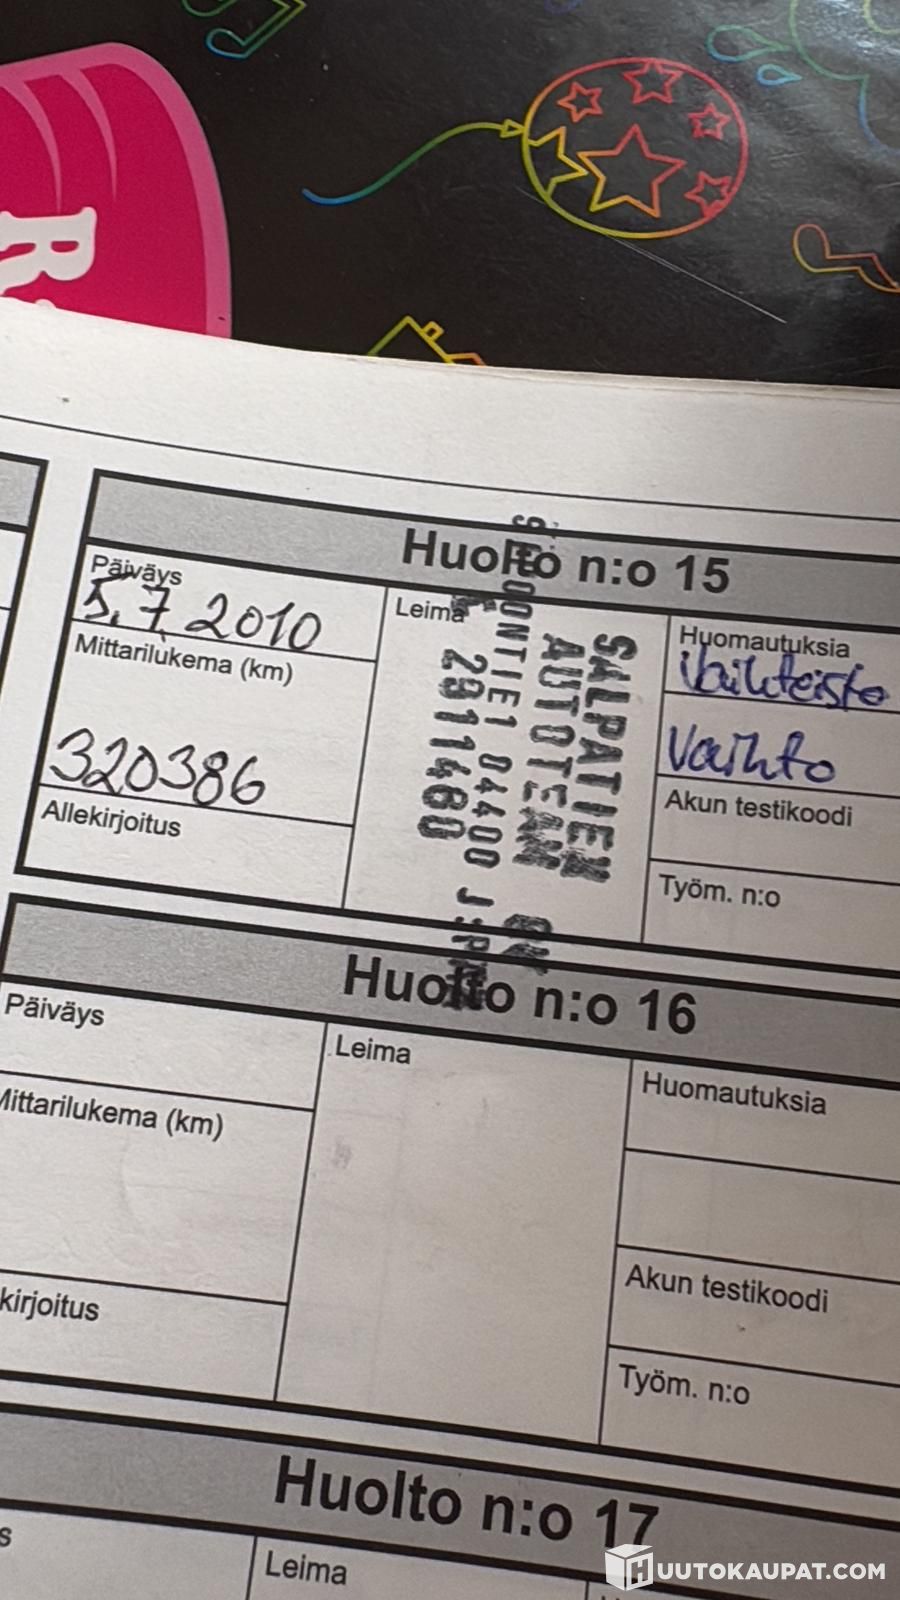 R
Huolto n:o 15
Päiväys
5.7.2010
Mittarilukema (km)
320386
Allekirjoitus
Leima
SALPATIEN
AUTOTEAM OY
04400
2911460
Huomautuksia
Vaihteisto
Vaihto
Akun testikoodi
Työm. n:o
Huolto n:o 16
Päiväys
Mittarilukema (km)
kirjoitus
Leima
Huomautuksia
Akun testikoodi
Työm. n:o
Huolto n:o 17
s
Leima
HUUTOKAUPAT.COM